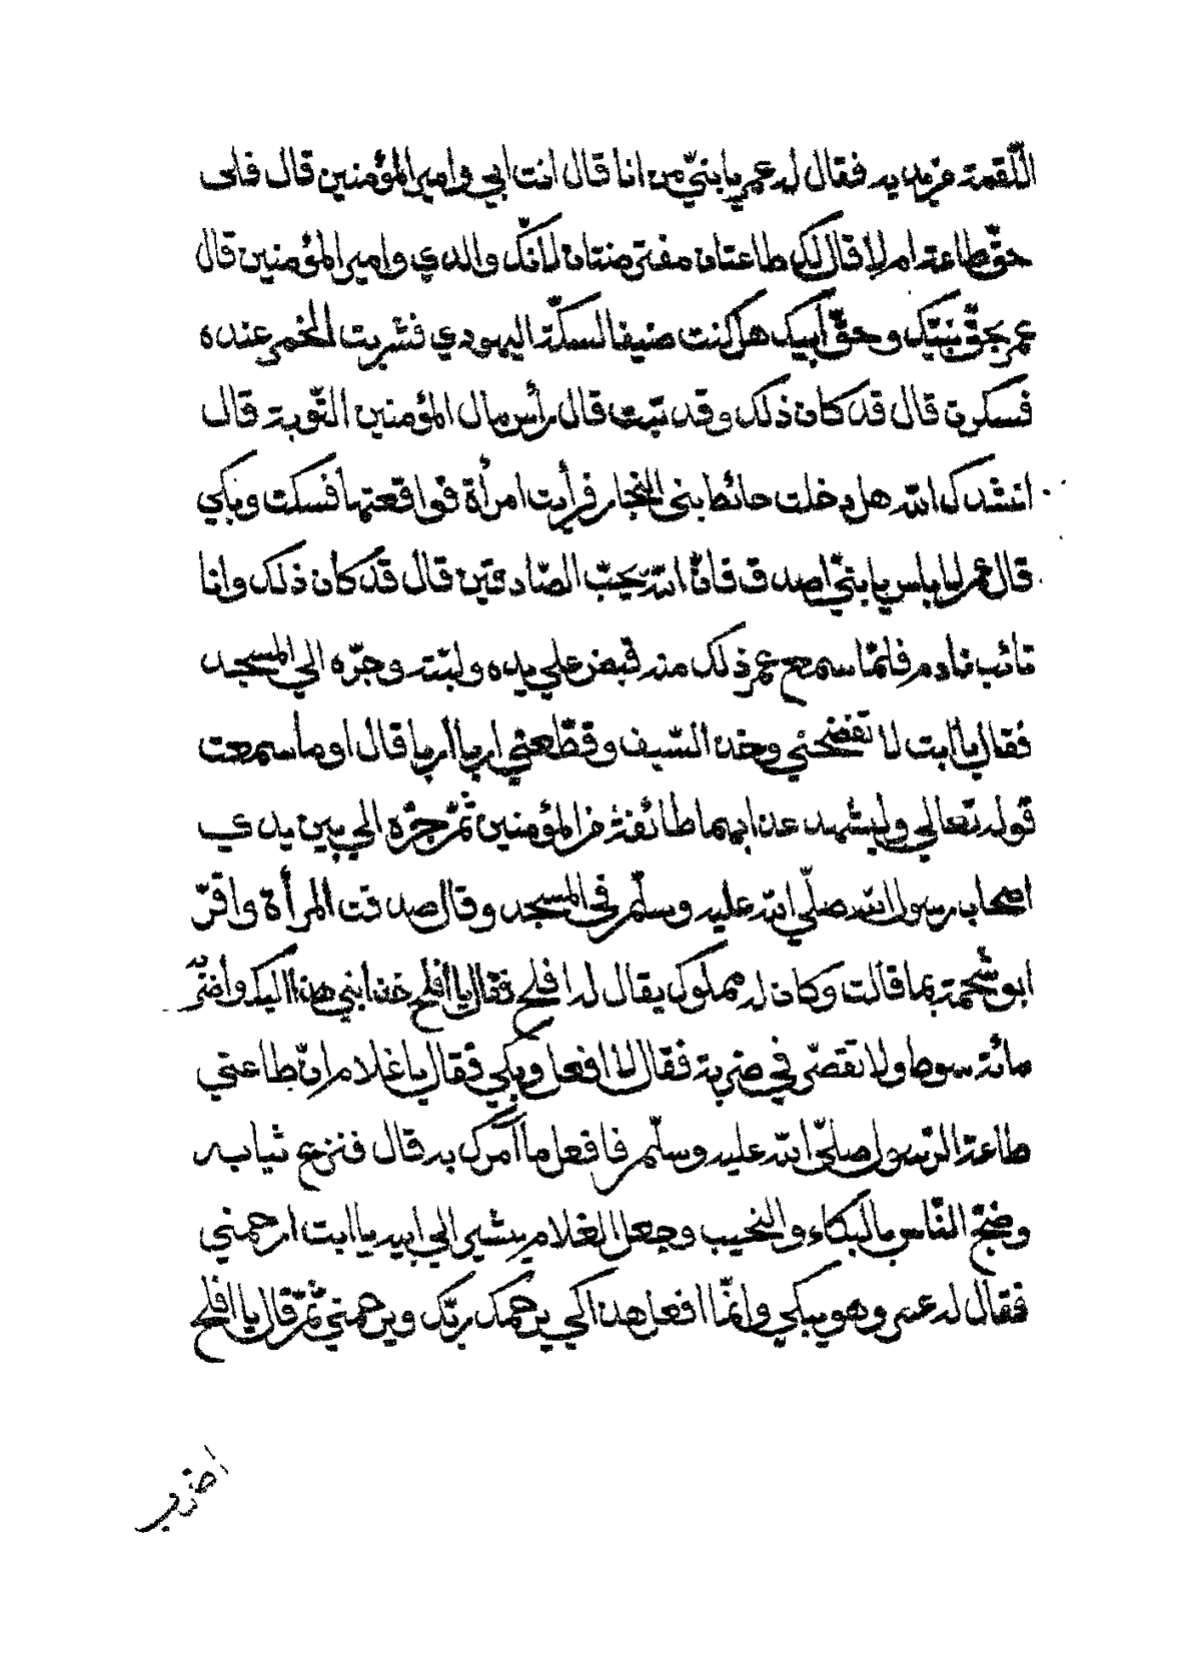 اللّقمة من يديه فقال له عمر يا بنيّ من انا قال انت ابي وامير المؤمنين قال فلى
حقّ طاعة ام لا قال لك طاعتان مفترضتان لانّك والدي وامير المؤمنين قال
عمر بحقّ نبيّك وحقّ أبيك هل كنت ضيفا لسكّة اليهودي فشربت الخمر عنده
فسكرت قال قد كان ذلك وقد تبت قال رأس مال المؤمنين التّوبة قال
انشدك الله هل دخلت حائط بنى النجار فرأيت امرأة فواقعتها فسكت وبكي
قال عمر لا باس يا بنيّ اصدق فانّ الله يحبّ الصّادقين قال قد كان ذلك وانا
تائب نادم فلمّا سمع عمر ذلك منه قبض علي يده ولبّته وجرّه الي المسجد
فقال يا ابت لا تفضحني وخذ السّيف وقطّعني اربا اربا قال اوما سمعت
قوله تعالي وليشهد عذابهما طائفة من المؤمنين ثمّ جرّه الي بين يدي
اصحاب رسول الله صلّي الله عليه وسلّم في المسجد وقال صدقت المرأة واقرّ
ابو شحمة بما قالت وكان له مملوك يقال له افلح فقال يا افلح خذ ابني هذا اليك واضربه
مائة سوط ولا تقصّر في ضربة فقال لا افعل وبكي فقال يا غلام انّ طاعتي
طاعة الرّسول صلّي الله عليه وسلّم فافعل ما آمرك به قال فنزع ثيابه
وضجّ النّاس بالبكاء والنحيب وجعل الغلام يشير الي ابيه يا ابت ارحمني
فقال له عمر وهو يبكي وانّما افعل هذا كي يرحمك ربّك ويرحمني ثمّ قال يا افلح
اضرب